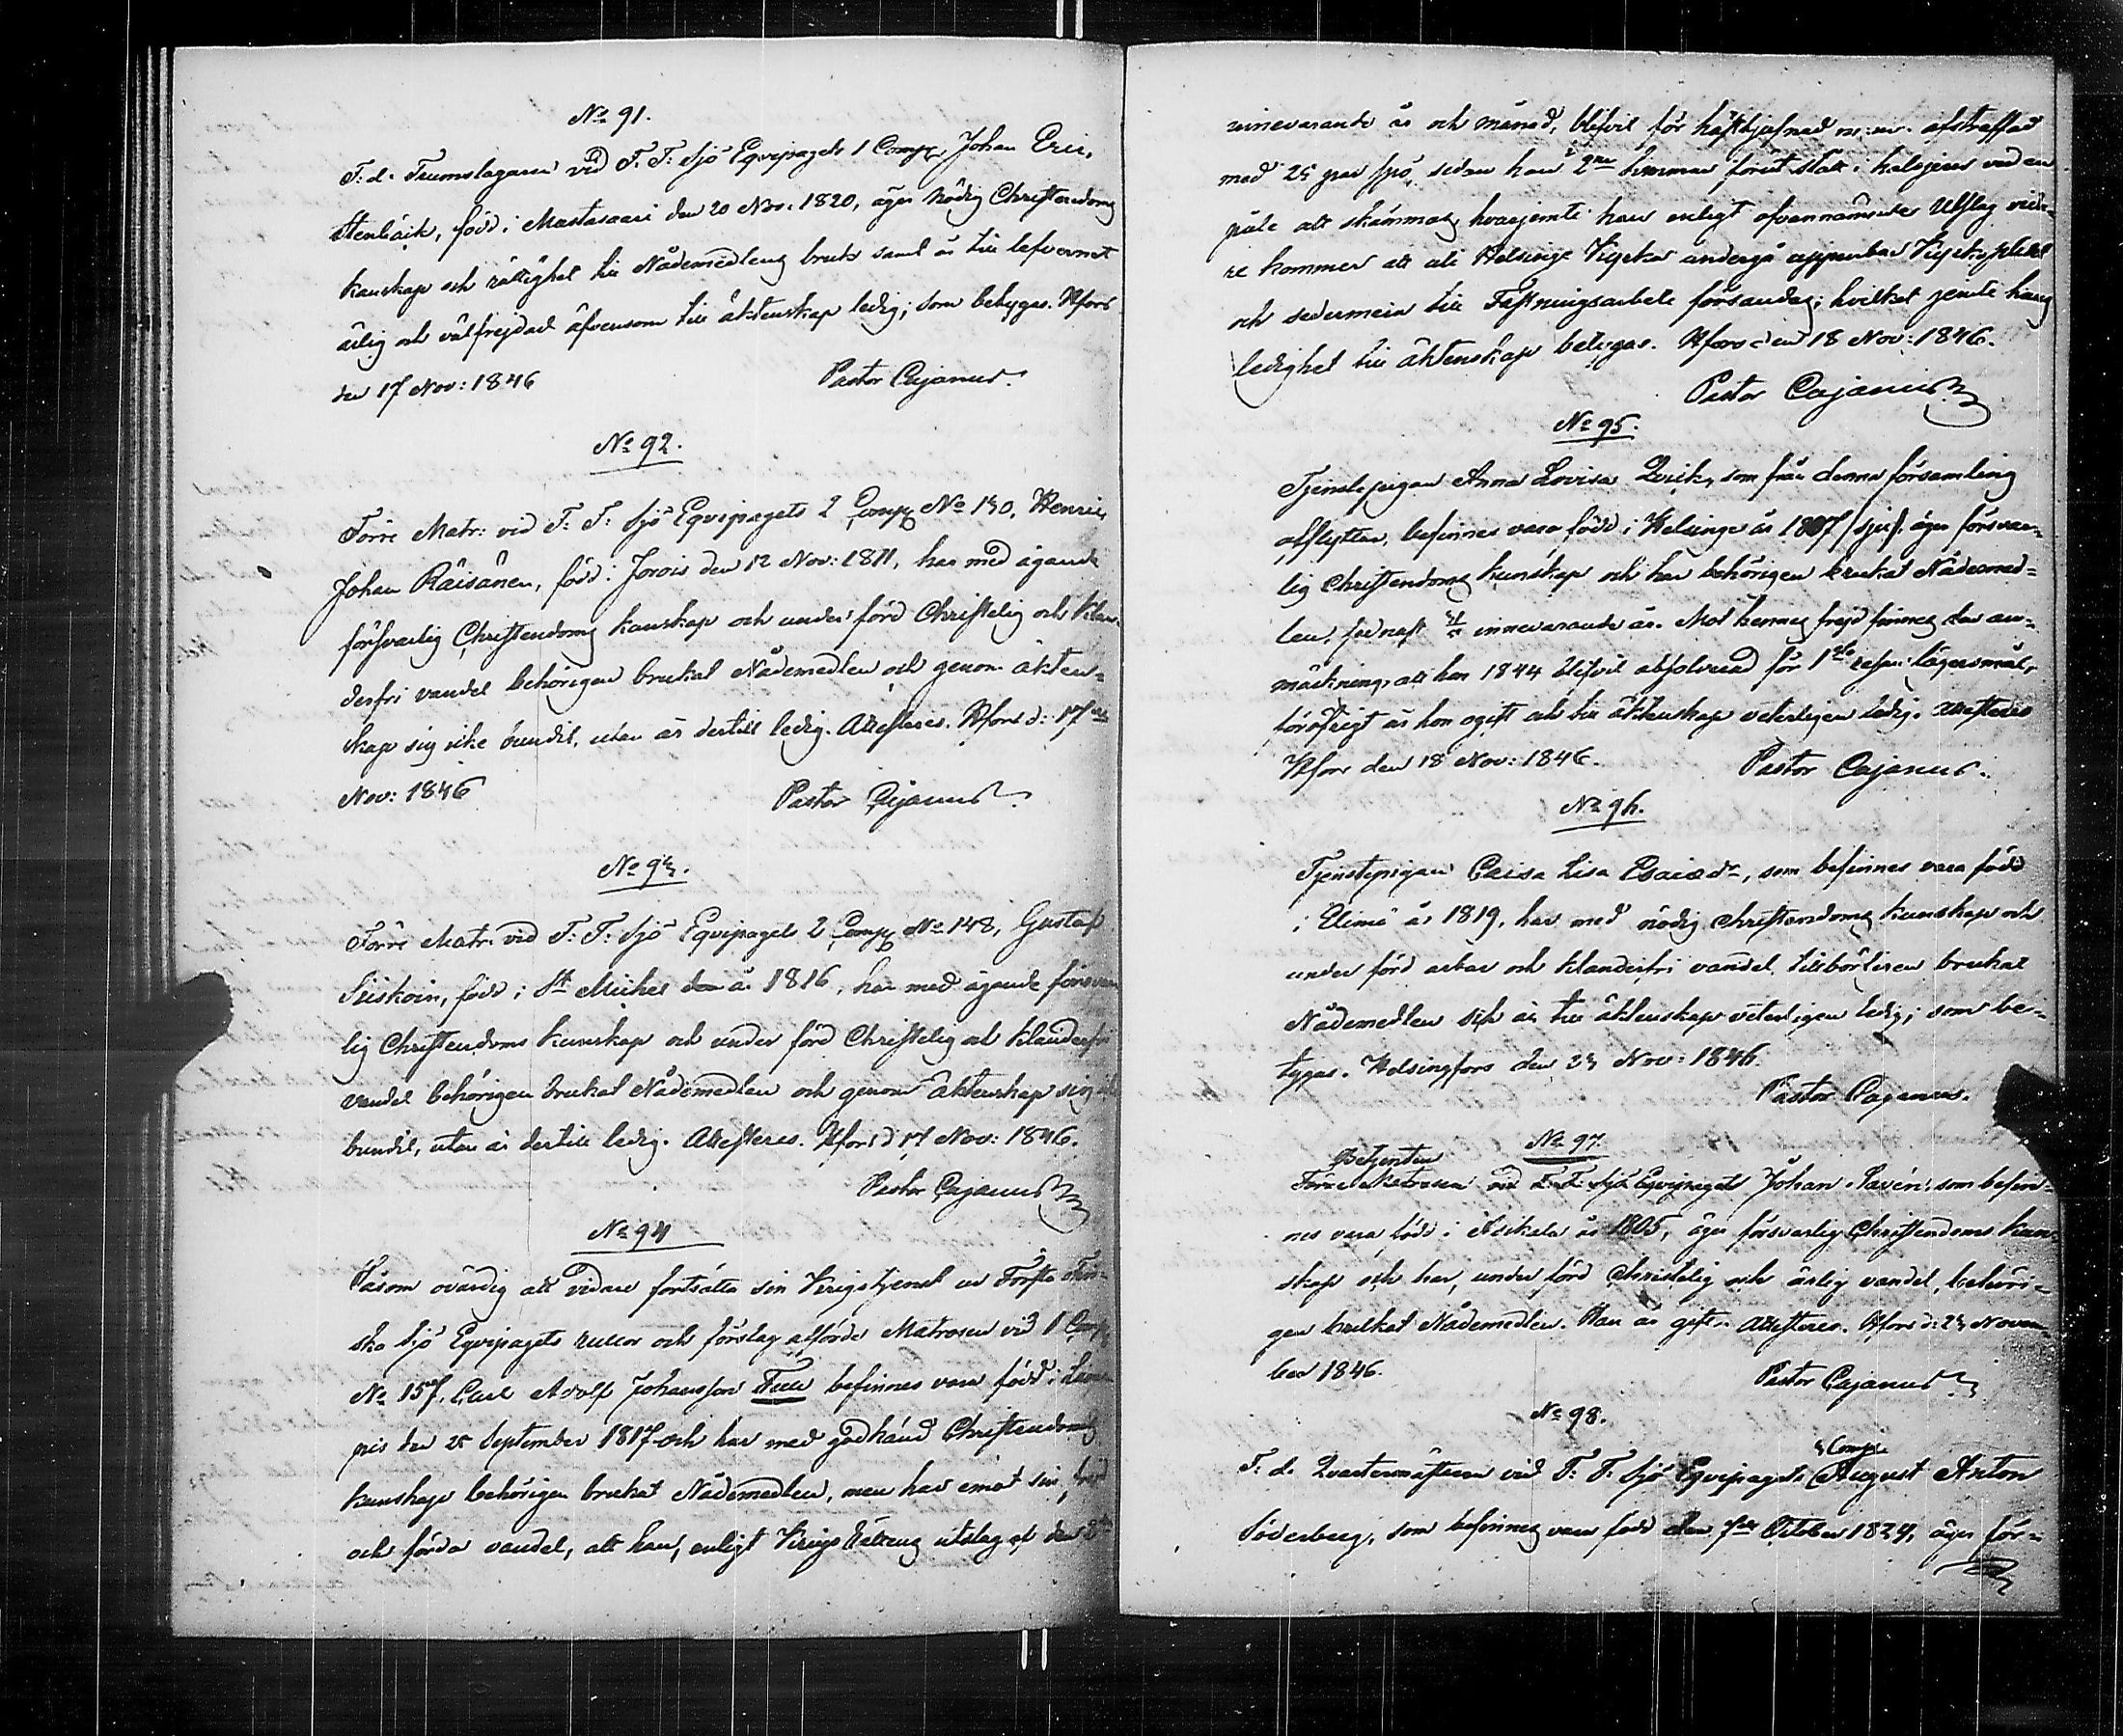 No 91.
F: d. Trumslagaren vid F. F: Sjö Eqvipagets 1 Comp, Johan Eric
Stenbäck, född i Mustasaari den 20 Nov: 1820, äger nödig Christendoms
kunskap och rättighet till Nådemedlens bruk samt är till lefvernet
ärlig och välfrejdad äfvensom till äktenskap ledig; som betygas. Hfors
den 17 Nov: 1846 Pastor Cajanus.
No 92.
Förre Matr: vid F: F: Sjö Eqvipagets 2 Comp No 130, Henric
Johan Räisänen, född i Jorois den 12 Nov: 1811, har med ägande
försvarlig Christendoms kunskap och under förd Christelig och klan-
derfri vandel behörigen brukat Nådemedlen och genom äkten-
skap sig icke bundit, utan är dertill ledig. Attesteres. Hfors d: 17
Nov: 1846 Pastor Cajanus
No 93.
Förre Matr. vid F: F: Sjö Eqvipagets 2 Comp No 148, Gustaf
Siiskoin, född i St Michel år 1816, har med ägande försvar
lig Christendoms kunskap och under förd Christelig och klanderfri
vandel behörigen brukat Nådemedlen och genom äktenskap sig
bundit, utan är dertill ledig. Attesteres. Hfors d 17 Nov: 1846.
Pastor Cajanus
No 94
Såsom ovärdig att vidare fortsätta sin Krigstjenst ur Första Fin-
ska Sjö Eqvipagets rullor och förslag afförde Matrosen vid 1 Comp
No 157, Carl Adolf Johansson befinnes vara född i
den 25 September 1817 och har med godkänd Christendoms
kunskap behörigen brukat Nådemedlen, men har emot sin
och förda vandel, att han, enligt Krigs Rättens utslag af den
innevarande år och månad, blifvit för m: m. afstraffad
med 25 par spö, sedan han 2ne timmar förut stått i halsjern vid en
påle att skämmas, hvarjemte han enligt ofvannämnde Utslag vida-
re kommer att uti Helsinge Kyrka undergå uppenbar Kyrkoplikt
och sedermera till Fästningsarbete försändas; hvilket jemte hans
ledighet till äktenskap betygas. Hfors den 18 Nov: 1846.
Pastor Cajanus
No 95.
Tjenstepigan Anna Lovisa Qvick, som från denna församling
afflyttar, befinnes vara född i Helsinge år 1807 äger försvar-
lig Christendoms kunskap och har behörigen brukat Nådemed-
len, sednast innevarande år. Mot hennes frejd finnes den an-
märkning, att hon 1844 blifvit absolverad för 1sta resan lägersmål,
föröfrigt är hon ogift och till äktenskap veterligen ledig. Attesteres
Hfors den 18 Nov: 1846. Pastor Cajanus.
No 96.
Tjenstepigan Caisa Lisa Esaiædr, som befinnes vara född
i Elimä år 1819, har med nödig Christendoms kunskap och
under förd ärbar och klanderfri vandel, tillbörligen brukat
Nådemedlen och är till äktenskap veterligen ledig; som be-
tygas. Helsingfors den 23 Nov: 1846.
Pastor Cajanus.
No 97.
Betjenten
Förre Matrosen vid F. F. Sjö Eqvipagets Johan Savén, som befin-
nes vara född i Asikala år 1805, äger försvarlig Christendoms kun-
skap och har, under förd Christelig och ärlig vandel, behöri-
gen brukat Nådemedlen. Han är gift. Attesteres. Hfors d: 23 Novem-
ber 1846. Pastor Cajanus
No 98.
Comp
F. d. Qvartermästaren vid F. F. Sjö Eqvipagets August Anton
Söderberg, som befinnes vara född den October 1824, äger för-